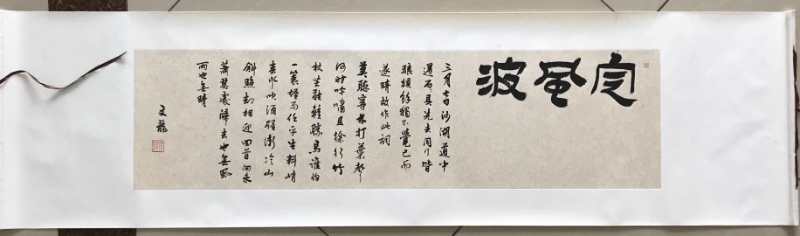 定風波
三月七日沙湖道中
遇雨具先去同行皆
狼狽餘獨不覺已而
遂晴故作此詞
莫聽穿林打葉聲
何妨吟嘯且徐行竹
杖芒鞋輕勝馬誰怕
一蓑煙雨任平生料峭
春風吹酒醒微冷山
斜照却相迎回首向來
蕭瑟處歸去也無風
雨也無晴
文龍